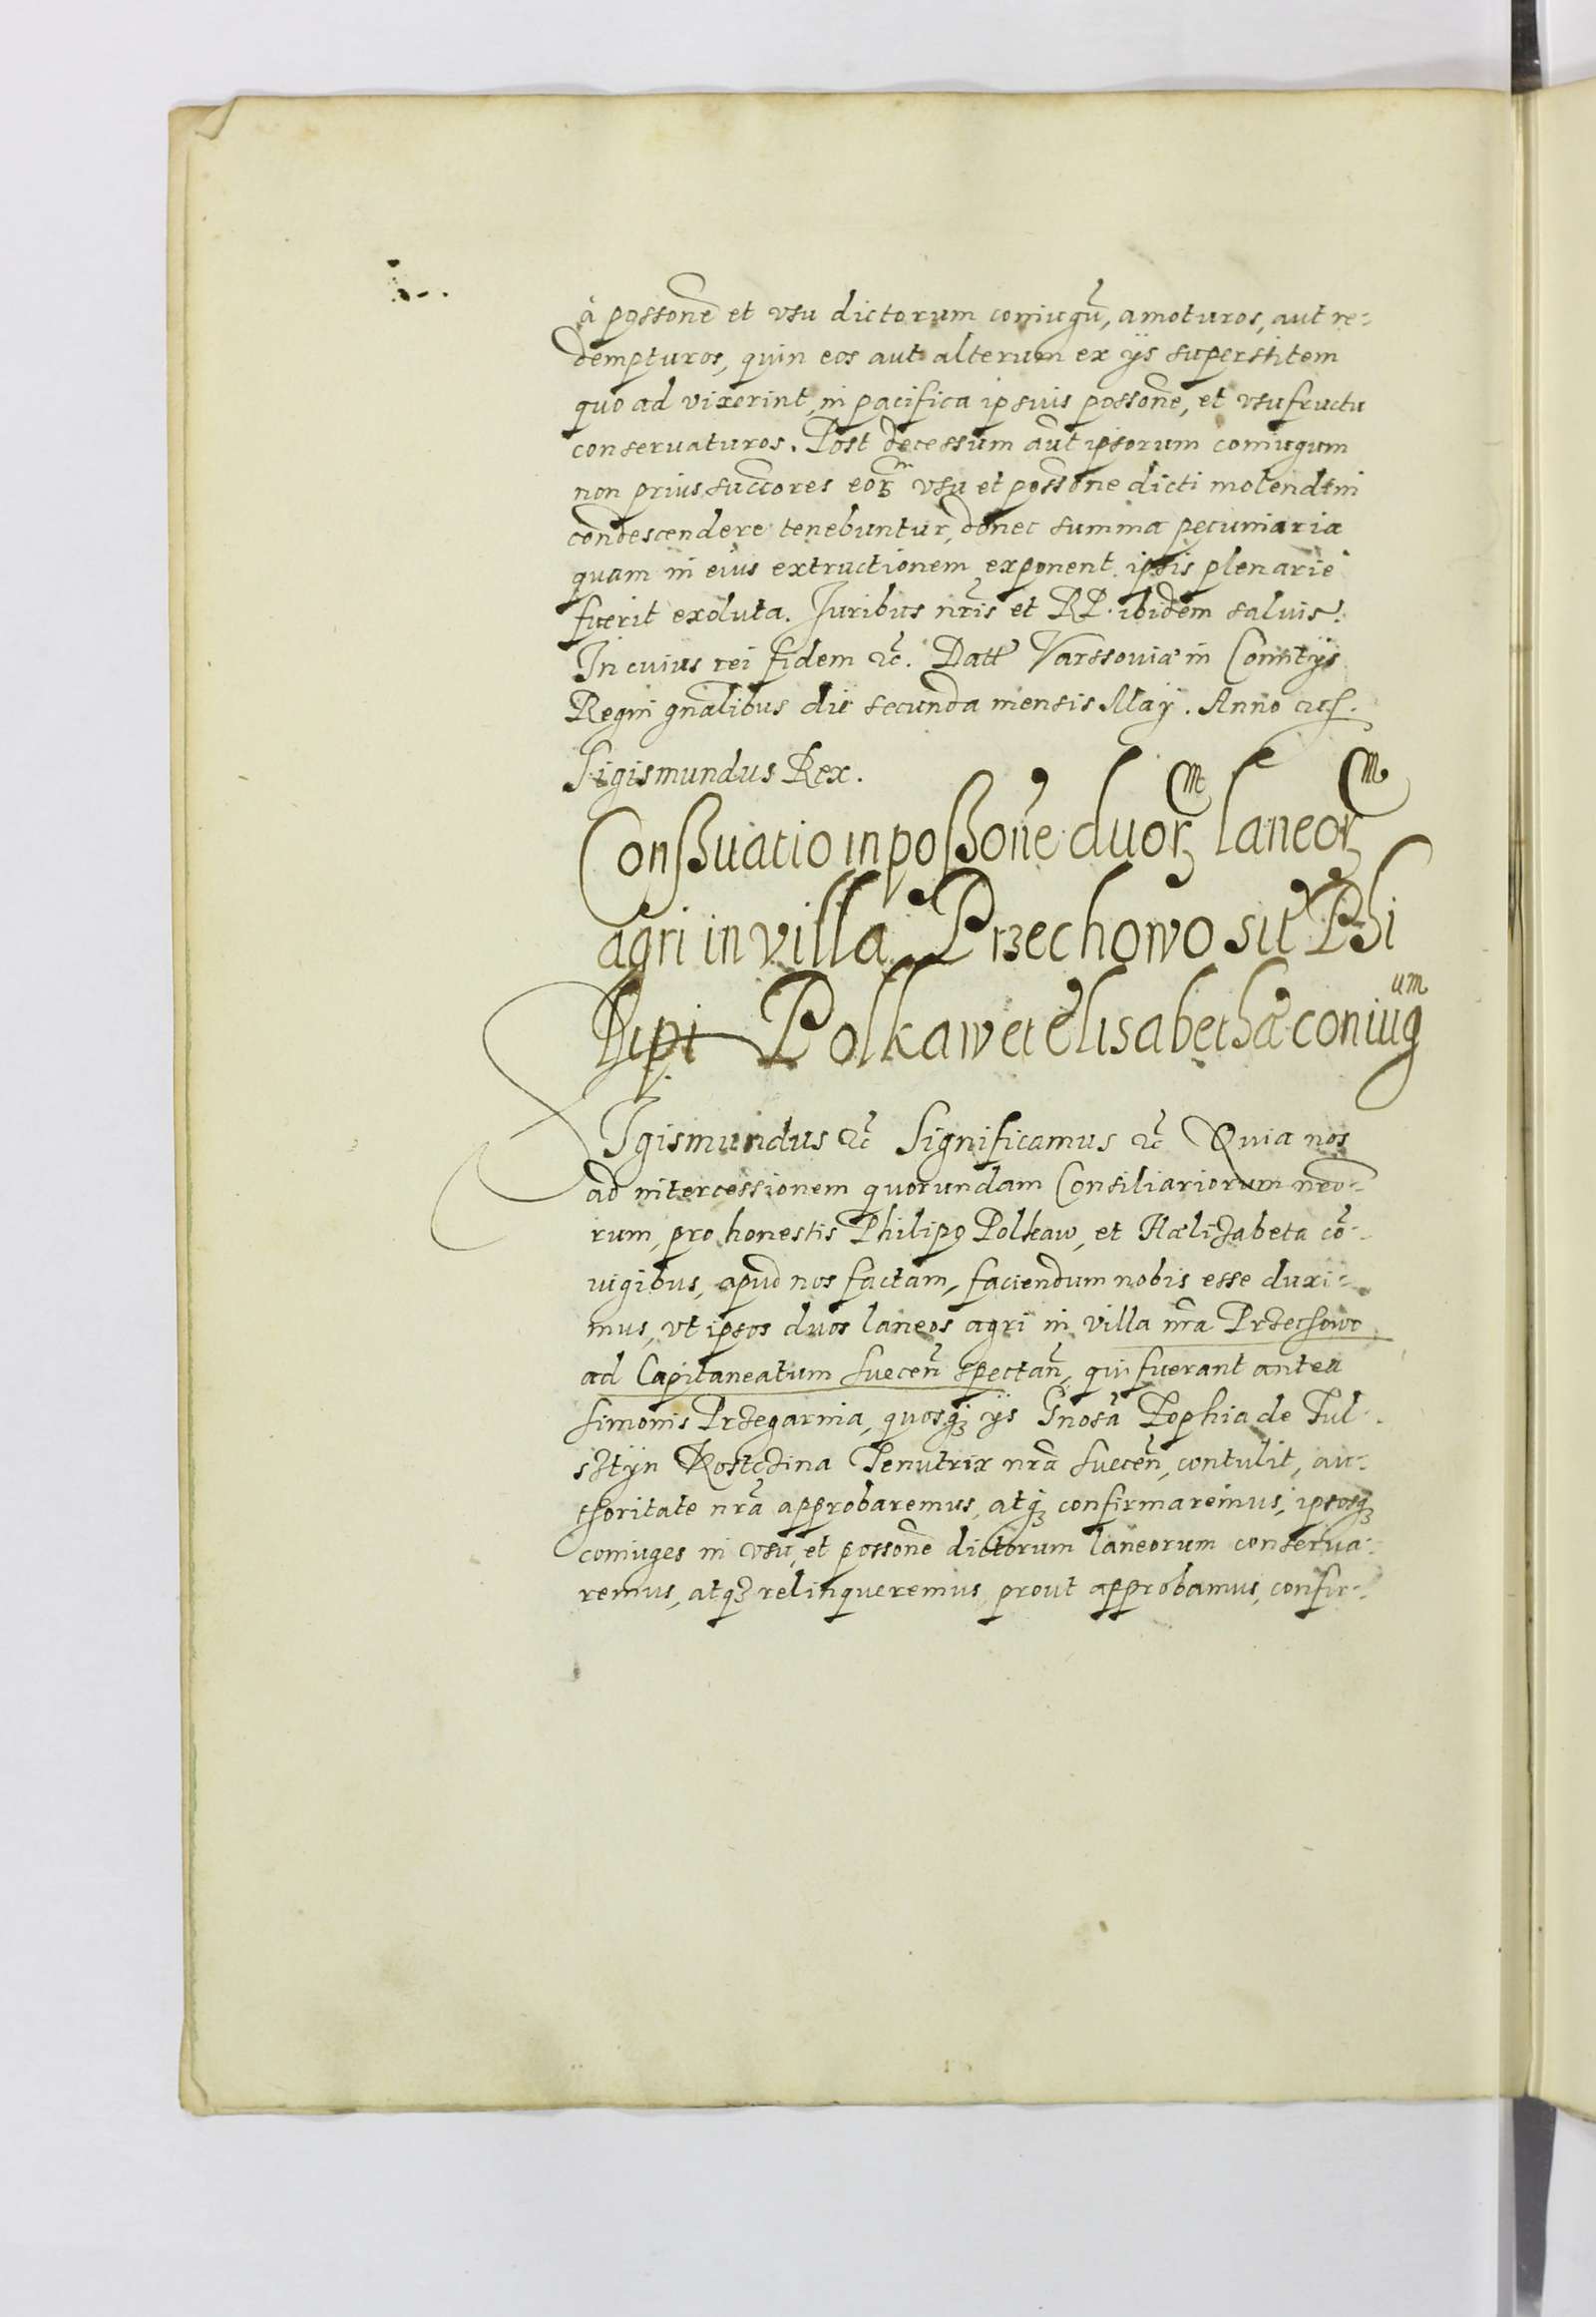 à possone et vsu dictorum coniugũ, amoturos, aut re-
dempturos, quin eos aut alterum ex ijs superstitem
quo ad vixerint, in pacifica ipsius possone, et vsufructu
conservaturos. Post decessum aũt ipsorum coniugum
non prius succores eorꝝ vsu et possone dicti molendini
condescendere tenebuntur, donec summa pecuniaria
quam in eius extructionem exponent ipsis plenarie
fuerit exoluta. Juribus nr̃is et RP. ibidem salvis.
In cuius rei fidem ꝛc̃. Datt Varssoviæ in Comitijs
Regni gnalibus die secunda mensis Maij. Anno
Sigismundus Rex.
Conßuatio in poßone duorꝝ laneorꝝ
agri in villa Przechowo sit Phi
lipi Polkaw et Elisabethæ coniugum
Sigismundus ꝛc̃ Significamus ꝛc̃ Quia nos
ad intercessionem quorundam Consiliariorum nro-
rum, pro honestis Philipo Polkaw, et Hælizabeta cõ-
iugibus, apud nos factam, faciendum nobis esse duxi-
mus, vt ipsos duos laneos agri in villa nr̃a Przechowo
ad Capitaneatum Suecen̄ spectan̄, qui fuerant antea
Simonis Przegarnia, quosq́ꝫ ijs Gnosa Zophia de Ful-
sztijn Kostczina Tenutrix nr̃a Suecen̄, contulit, au-
thoritate nr̃a approbaremus, atq́ꝫ confirmaremus, ipsosq́ꝫ
coniuges in vsu, et possone dictorum laneorum conserua-
remus, atqꝫ relinqueremus, prout approbamus, confir-